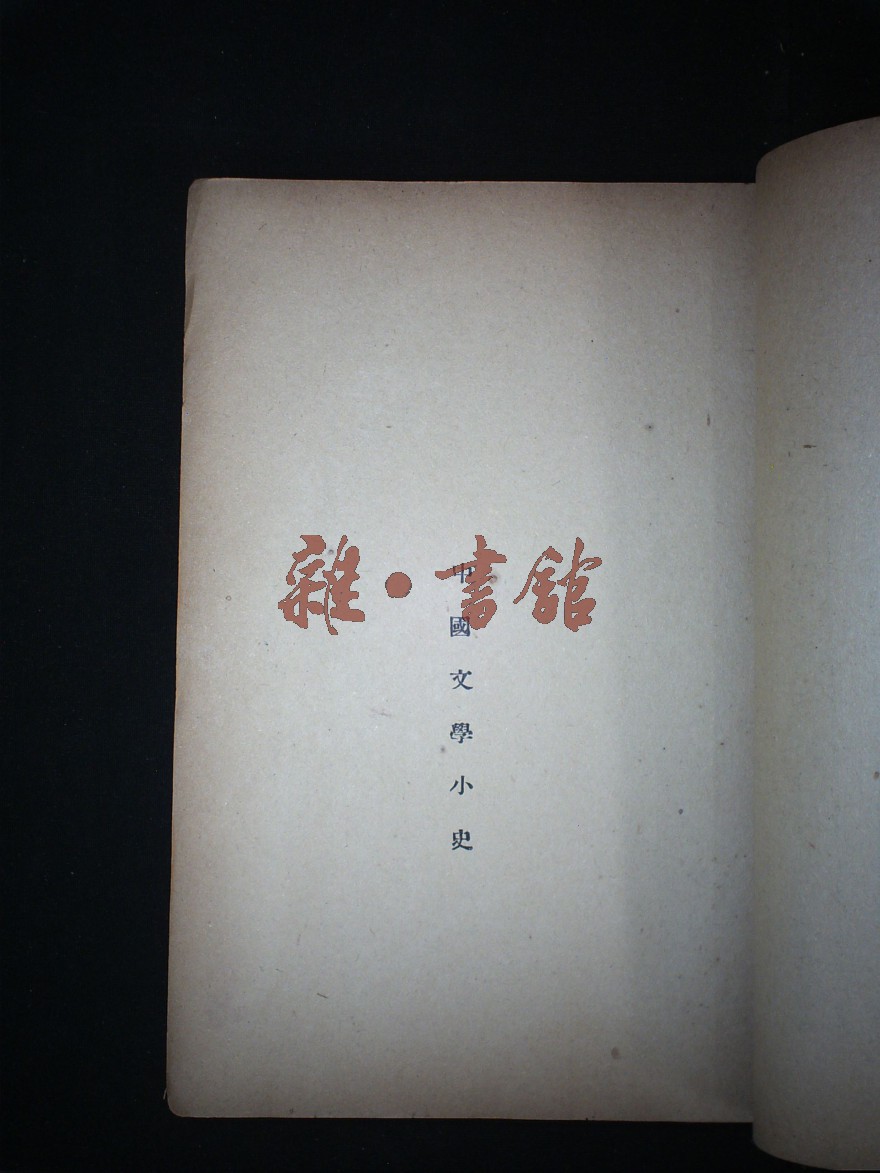 雜·書館
中國文學小史